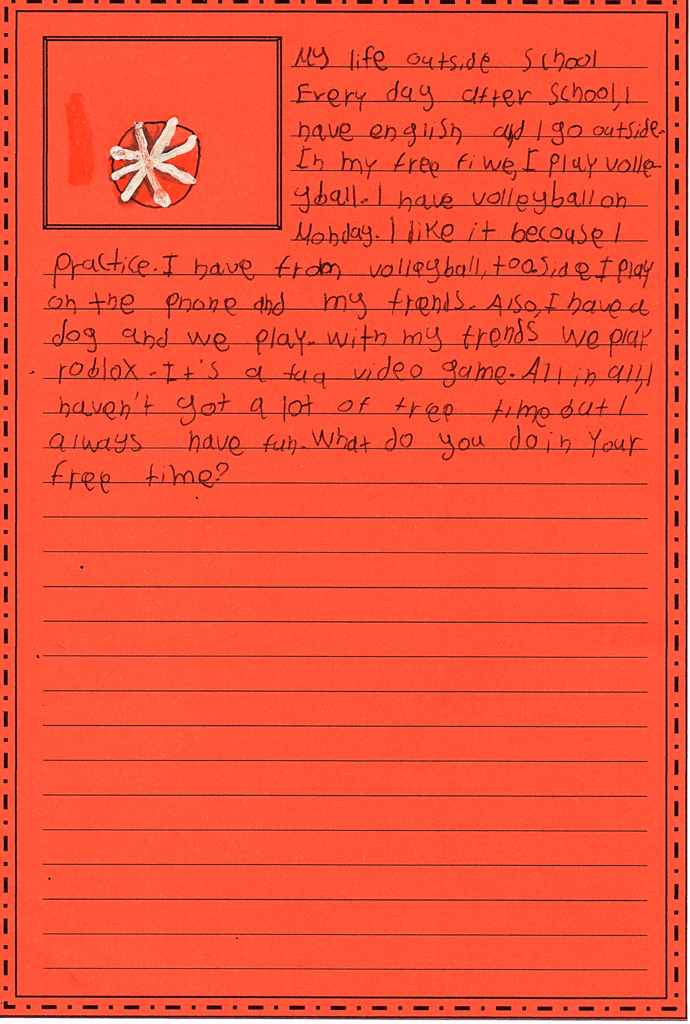 My life outside school
Every day after school, I
have english and I go outside.
In my free time, I play volle-
yball. I have volleyball on
Monday. I like it becouse I
practice. I have from volleyball, I play
on the phone and my frends. Also, I have a
dog and we play. With my frends we play
roblox. It's a video game. All in all, I
haven't got a lot of free time but I
always have fun. What do you do in your
free time?